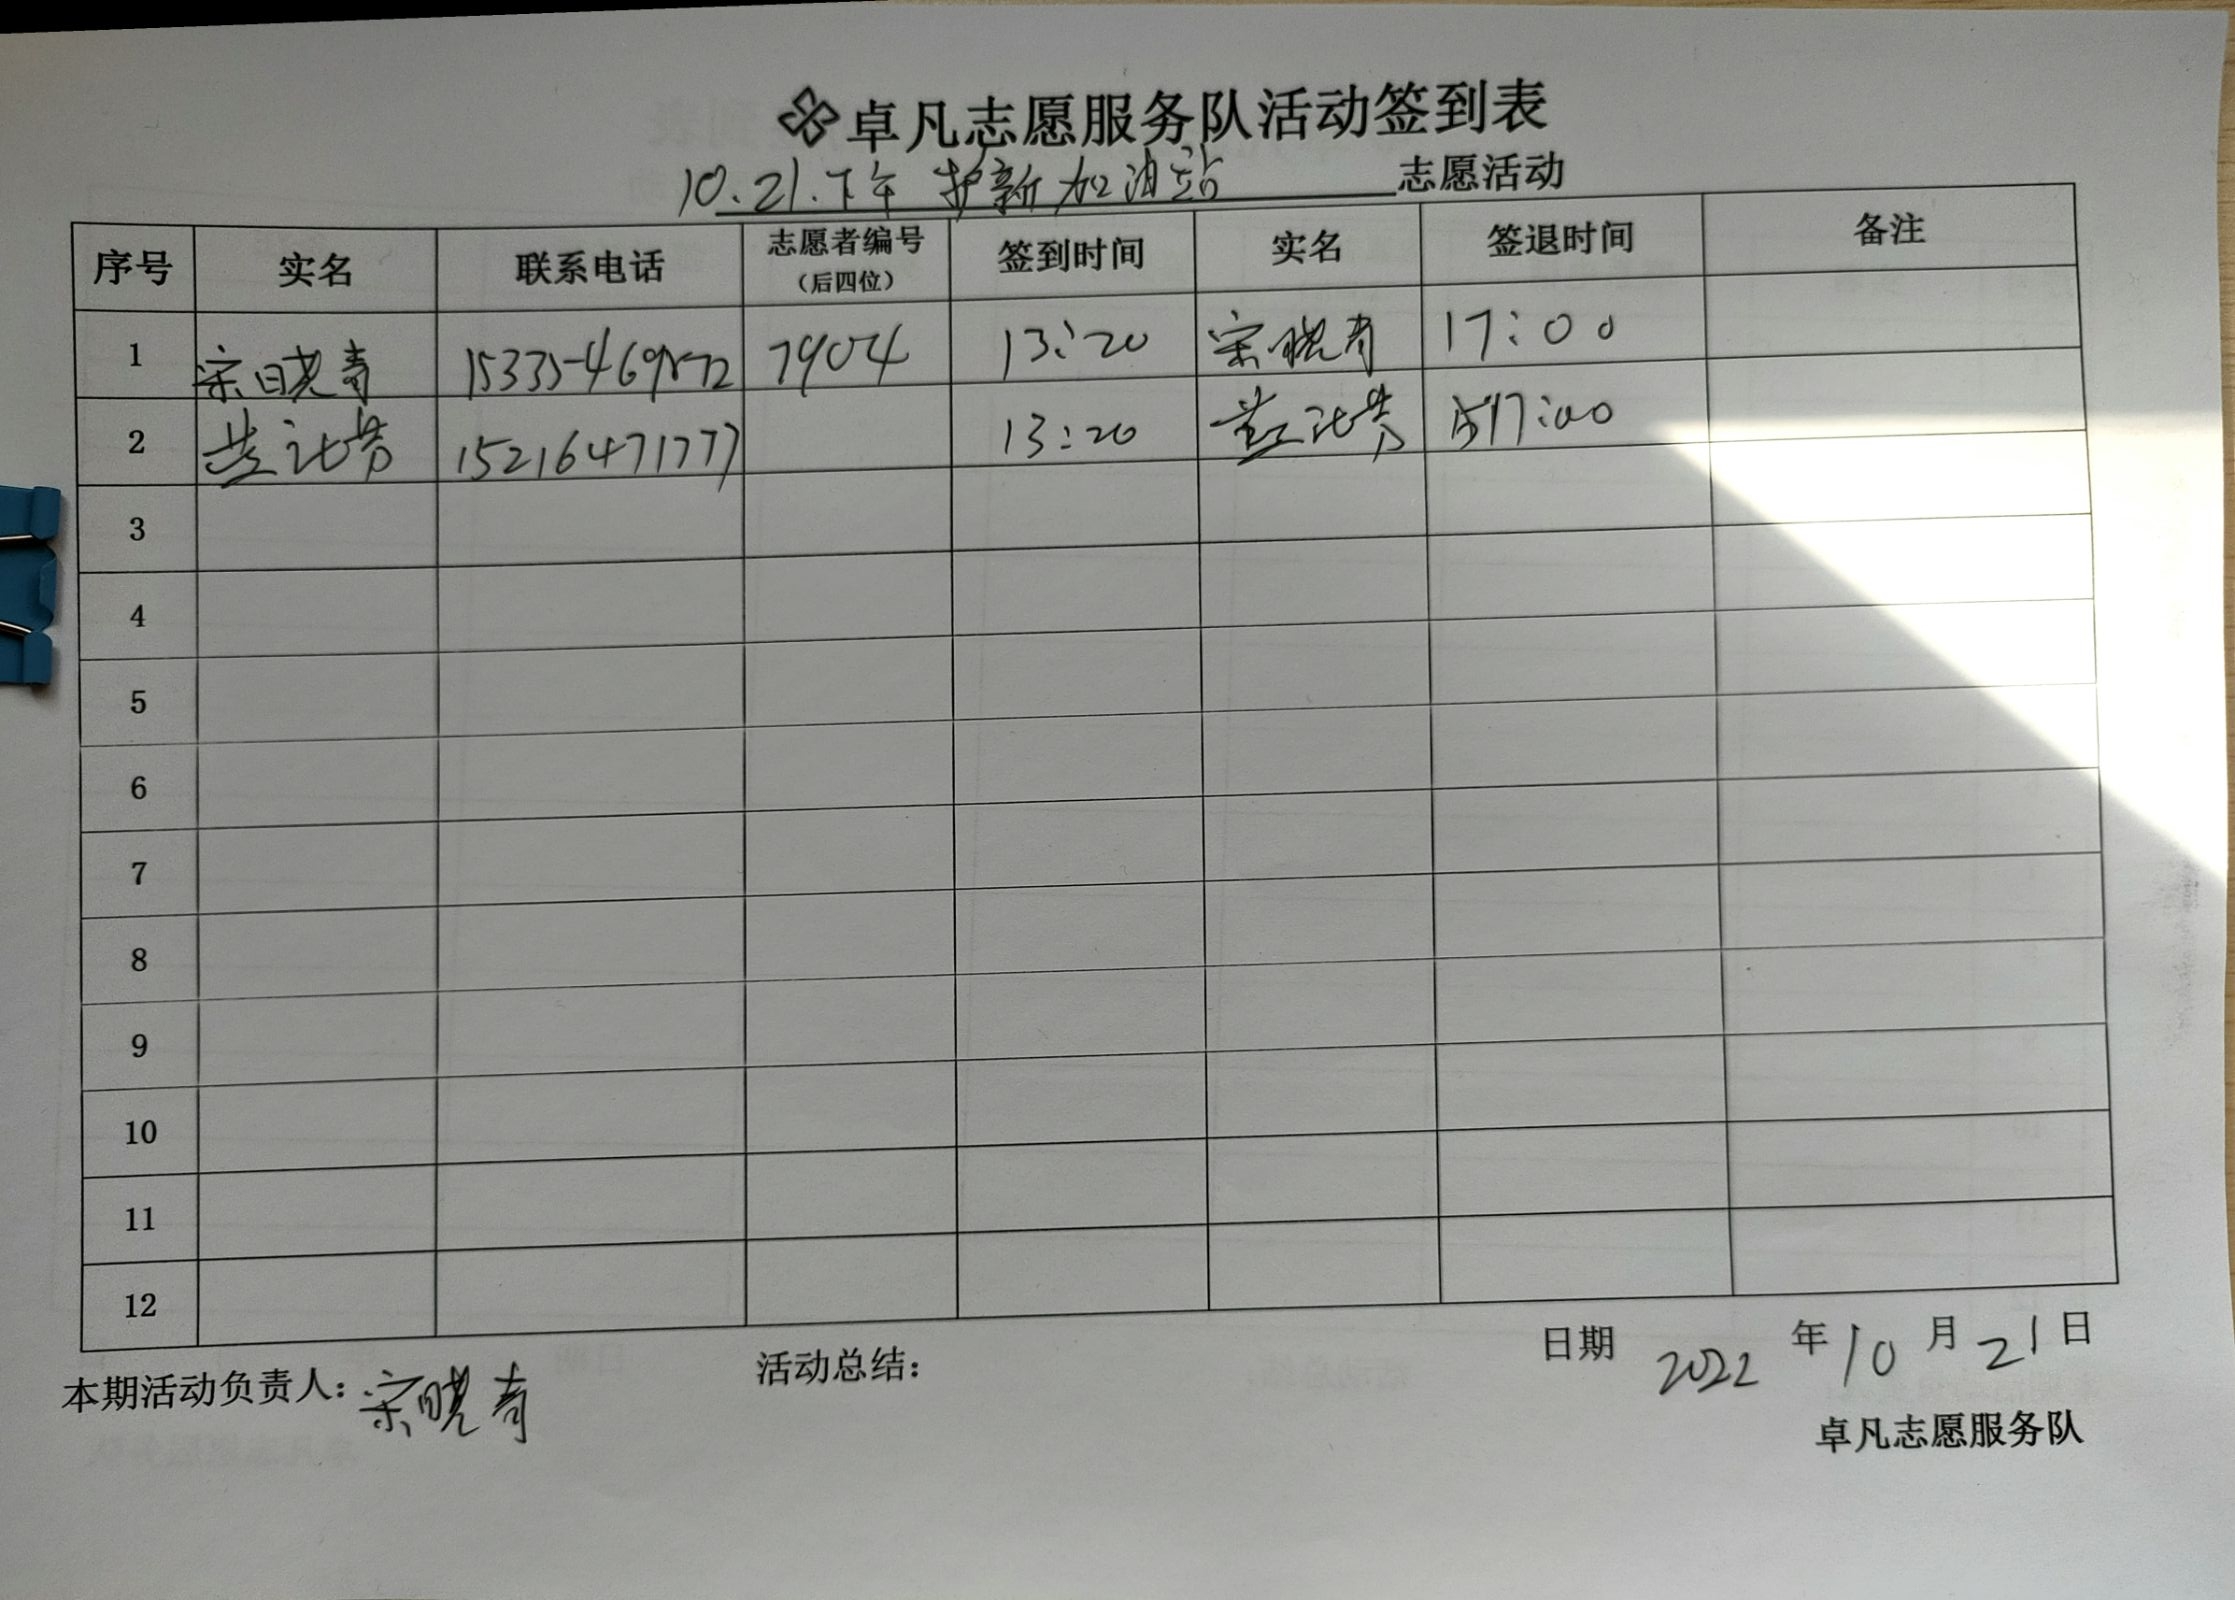 卓凡志愿服务队活动签到表
10.21.下午 护新加油站 志愿活动
序号 实名 联系电话 志愿者编号（后四位） 签到时间 实名 签退时间 备注
1 宋晓青 7904 13:20 宋晓青 17:00
2 15216471777 13:20 17:00
3
4
5
6
7
8
9
10
11
12
本期活动负责人：宋晓青 活动总结： 日期 2022 年 10 月 21 日
卓凡志愿服务队